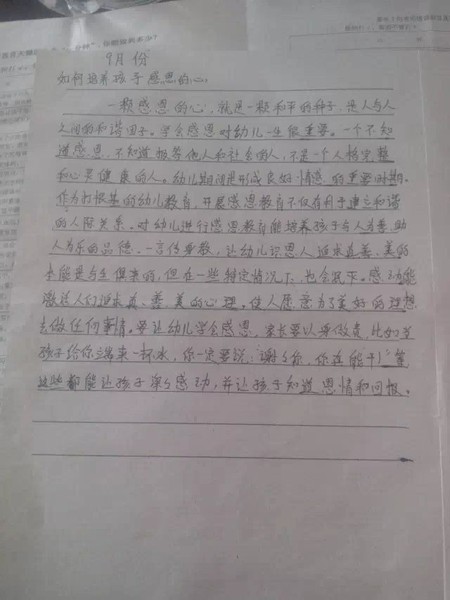 9月份
如何培养孩子感恩的心。
一颗感恩的心，就是一颗和平的种子，是人与人
之间的和谐因子。学会感恩对幼儿一生很重要。一个不知
道感恩，不知道报答他人和社会的人，不是一个人格完整
和心灵健康的人。幼儿期间是形成良好情感的重要时期。
作为打根基的幼儿教育，开展感恩教育不仅有利于建立和谐
的人际关系。对幼儿进行感恩教育能培养孩子与人为善、助
人为乐的品德。一言传身教，让幼儿识恩人追求真善、美的
本能是与生俱来的，但在一些特定情况下，也会抿灭。感动能
激发人们追求真、善、美的心理。使人愿意为了美好的理想
去做任何事情。要让幼儿学会感恩，家长要以身做责，比如当
孩子给你端来一杯水，你一定要说：谢谢你，你真能干！等
这些都能让孩子深深感动，并让孩子知道恩情和回报。